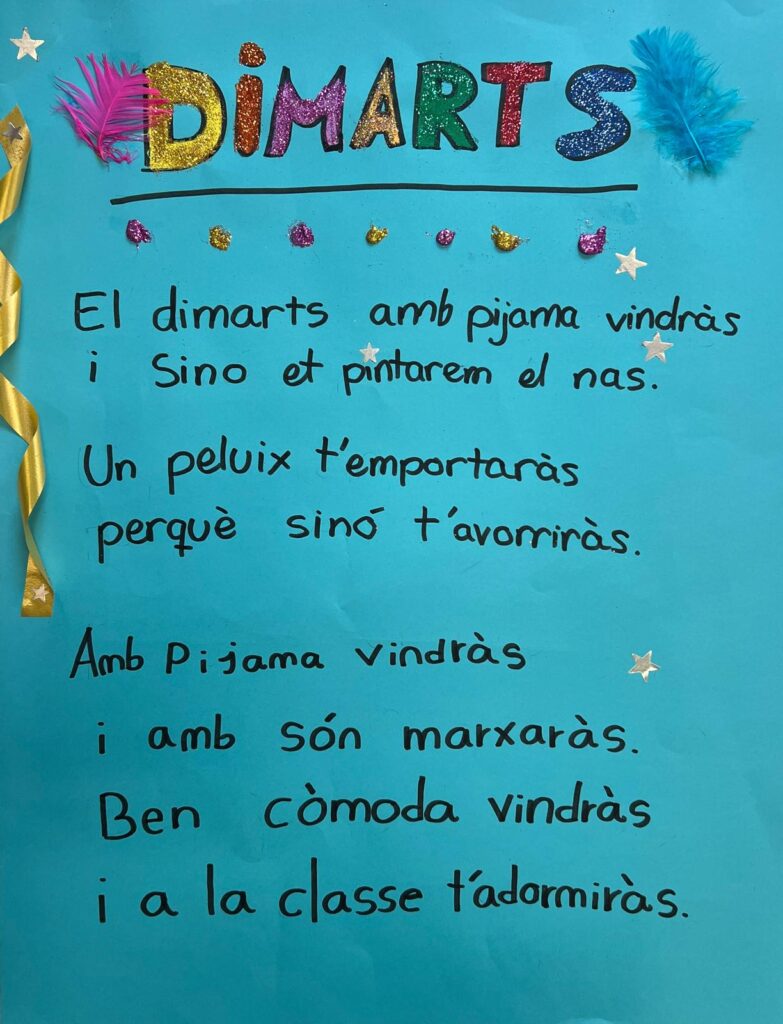 DiMARTS
El dimarts amb pijama vindràs
i Sino et pintarem el nas.
Un peluix t'emportaràs
perquè sinó t'avorriràs.
Amb Pijama vindràs
i amb són marxaràs.
Ben còmoda vindràs
i a la classe t'adormiràs.